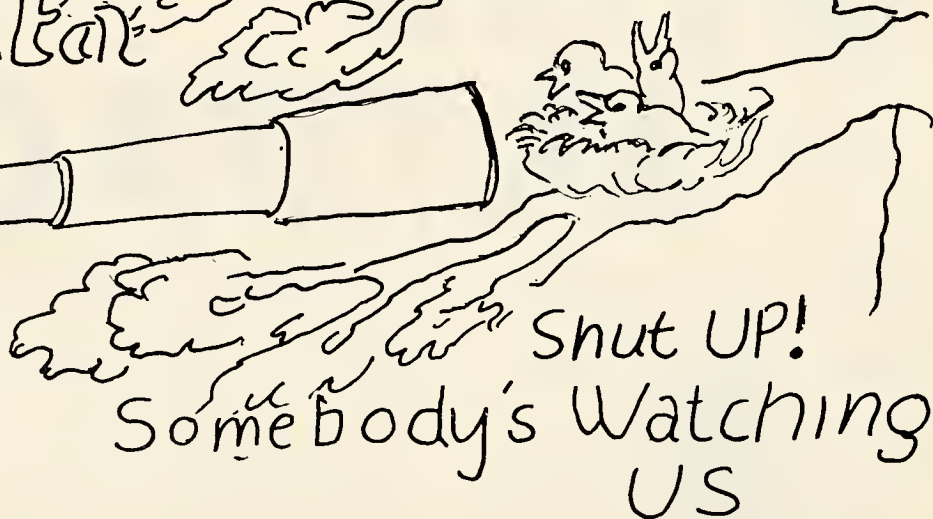 Shut UP!
Somebody's Watching
US